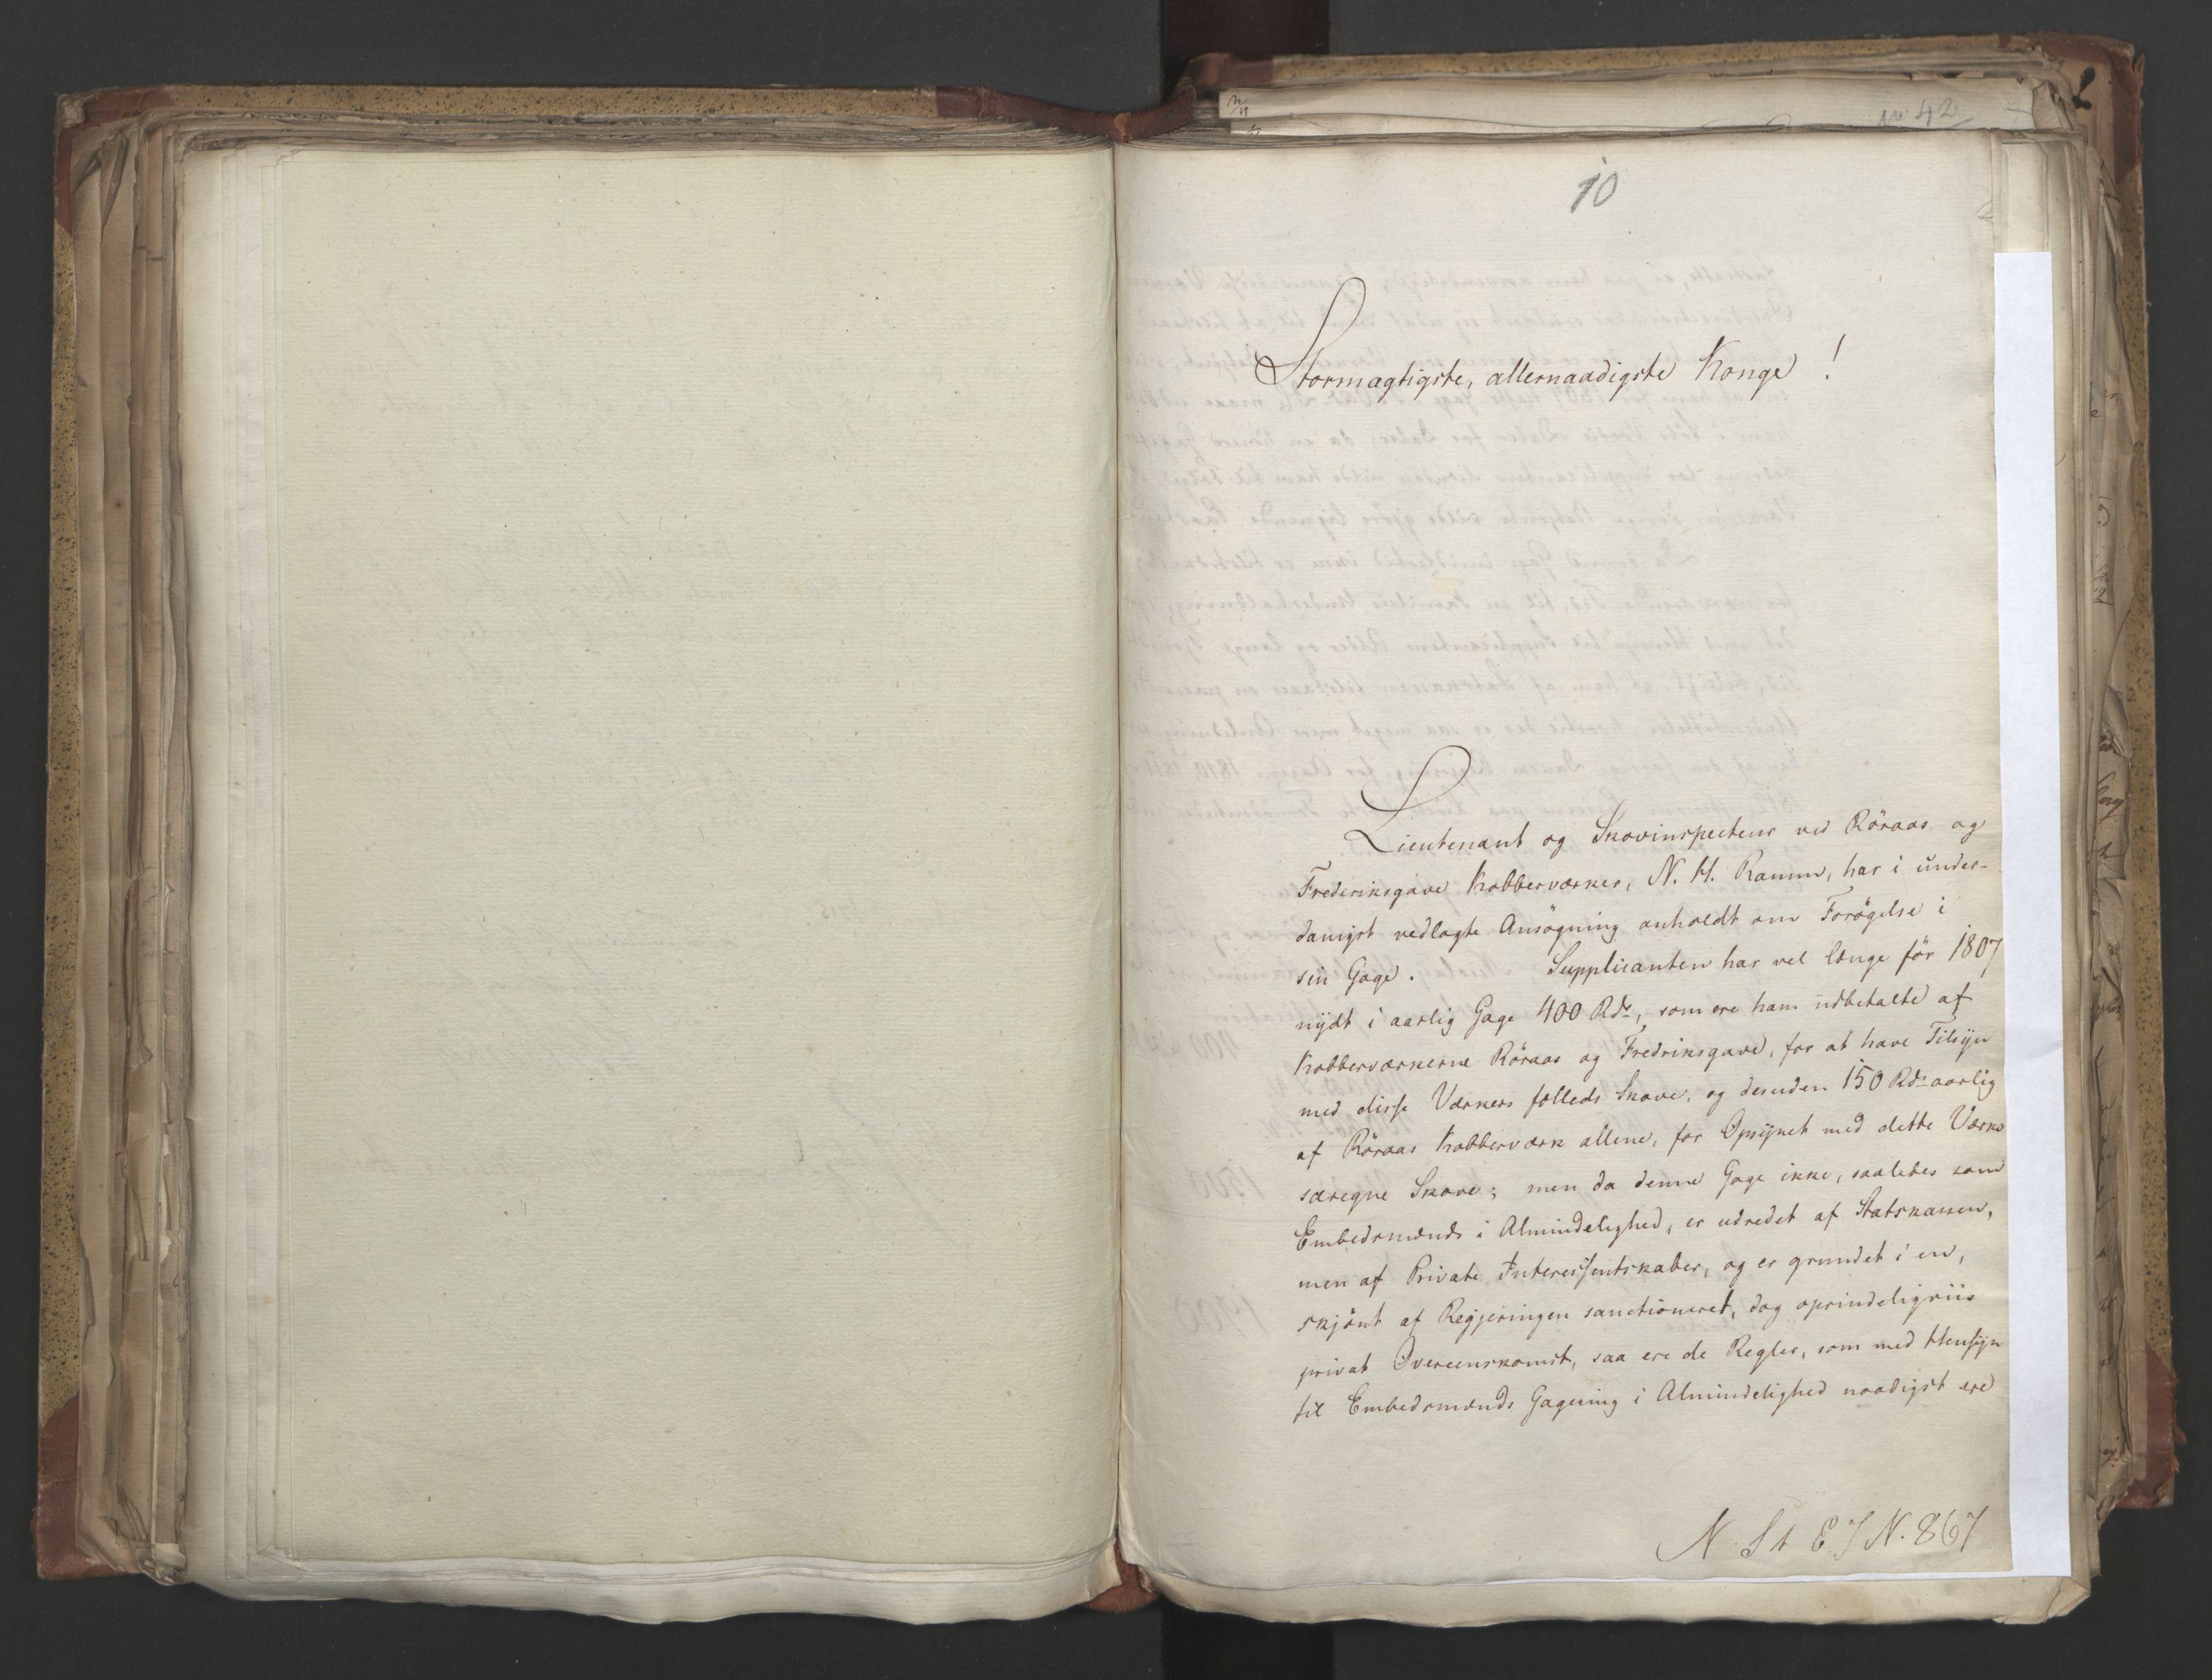 No 42
10
Stormagtigste, allernaadigste Konge!
Lieutenant og Skovinspecteur ved Röraas og
Frederiksgave Kobberværker, N. H. Ramm, har i under-
danigst vedlagte Ansögning anholdt om Forögelse i
sin Gage. Supplicanten har vel længe för 1807
nydt i aarlig Gage 400 Rdr, som ere ham udbetalte af
Kobberværkerne Röraas og Fredriksgave, for at have Tilsyn
med disse Værkers fælleds Skove, og desuden 150 Rdr aarlig
af Röraas Kobberværk allene, for Opsynet med dette Værks
særegne Skove; men da denne Gage ikke, saaledes som
Embedsmænds i Almindelighed, er udredet af Statskassen,
men af Private Interessentskaber, og er grundet i en,
skjönt af Regjeringen sanctioneret, dog oprindeligviis
privat Overeenskomst, saa ere de Regler, som med Hensyn
til Embedsmænds Gagering i Almindelighed naadigst ere
N. St. E. J N. 867